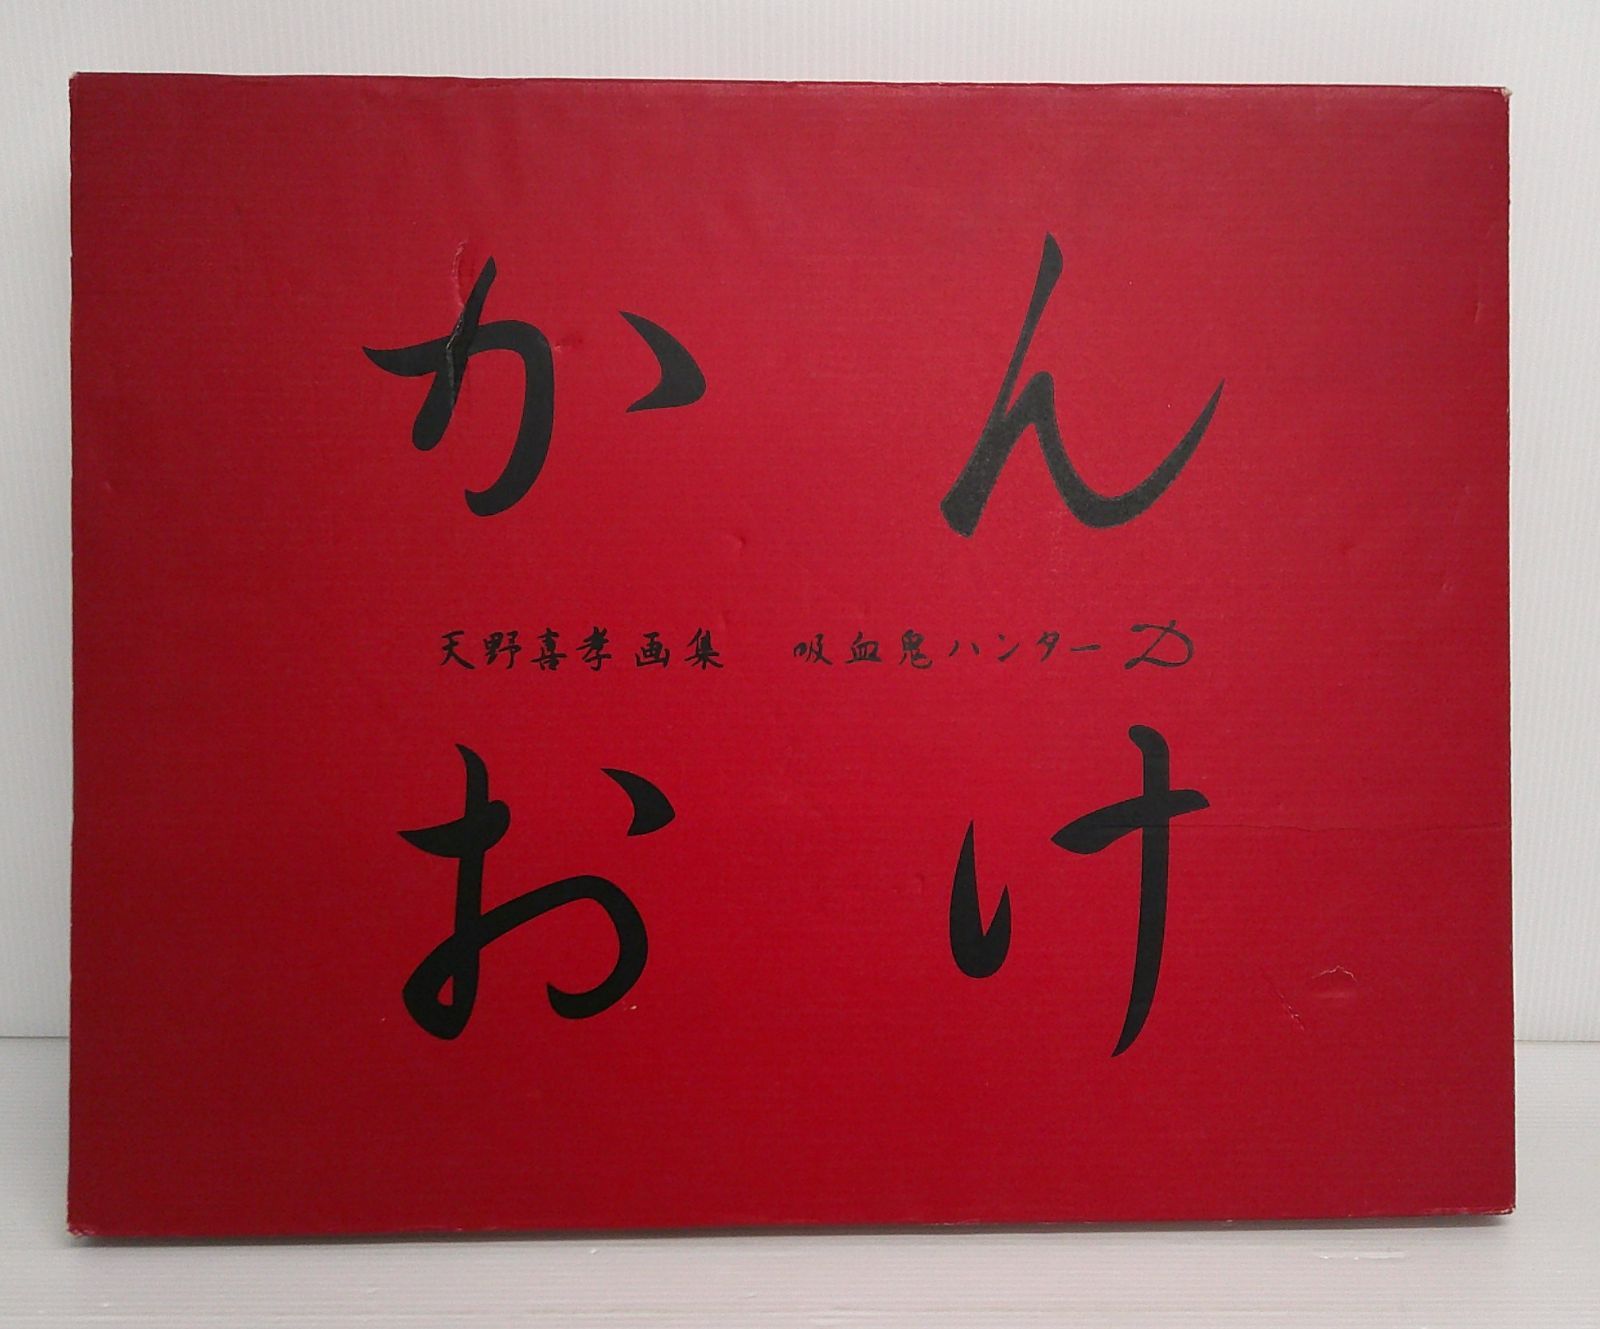 かん
天野喜孝画集 吸血鬼ハンターD
おけ